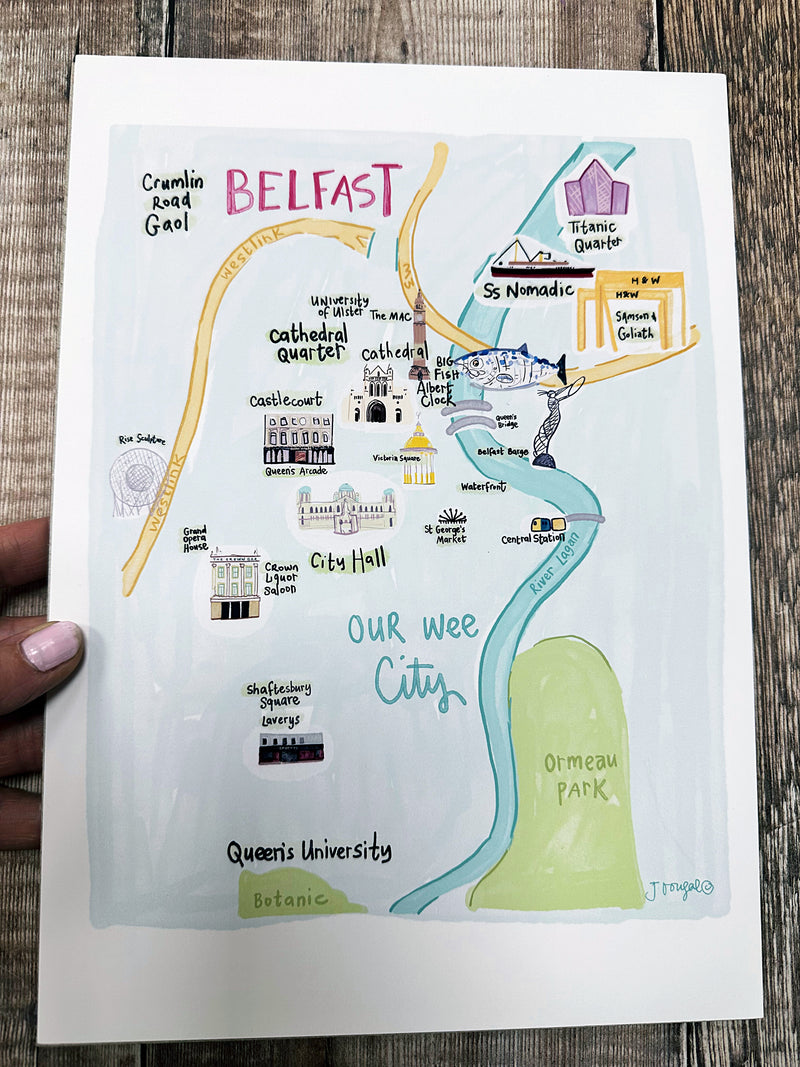 Crumlin
Road
Gaol
BELFAST
Westlink
M3
Titanic
Quarter
Ss Nomadic
H & W
H&W
Samson &
Goliath
University
of Ulster
The MAC
Cathedral
Quarter
Cathedral
BIG
Fish
Albert
Clock
Queen's
Bridge
Castlecourt
Queen's Arcade
Victoria Square
Belfast Barge
Rise Sculpture
Westlink
Waterfront
St George's
Market
Central Station
River Lagan
Grand
Opera
House
THE CROWN BAR
Crown
Liquor
Saloon
City Hall
OUR wee
City
Shaftesbury
Square
Laverys
Ormeau
PARK
Queen's University
Botanic
J Dougal